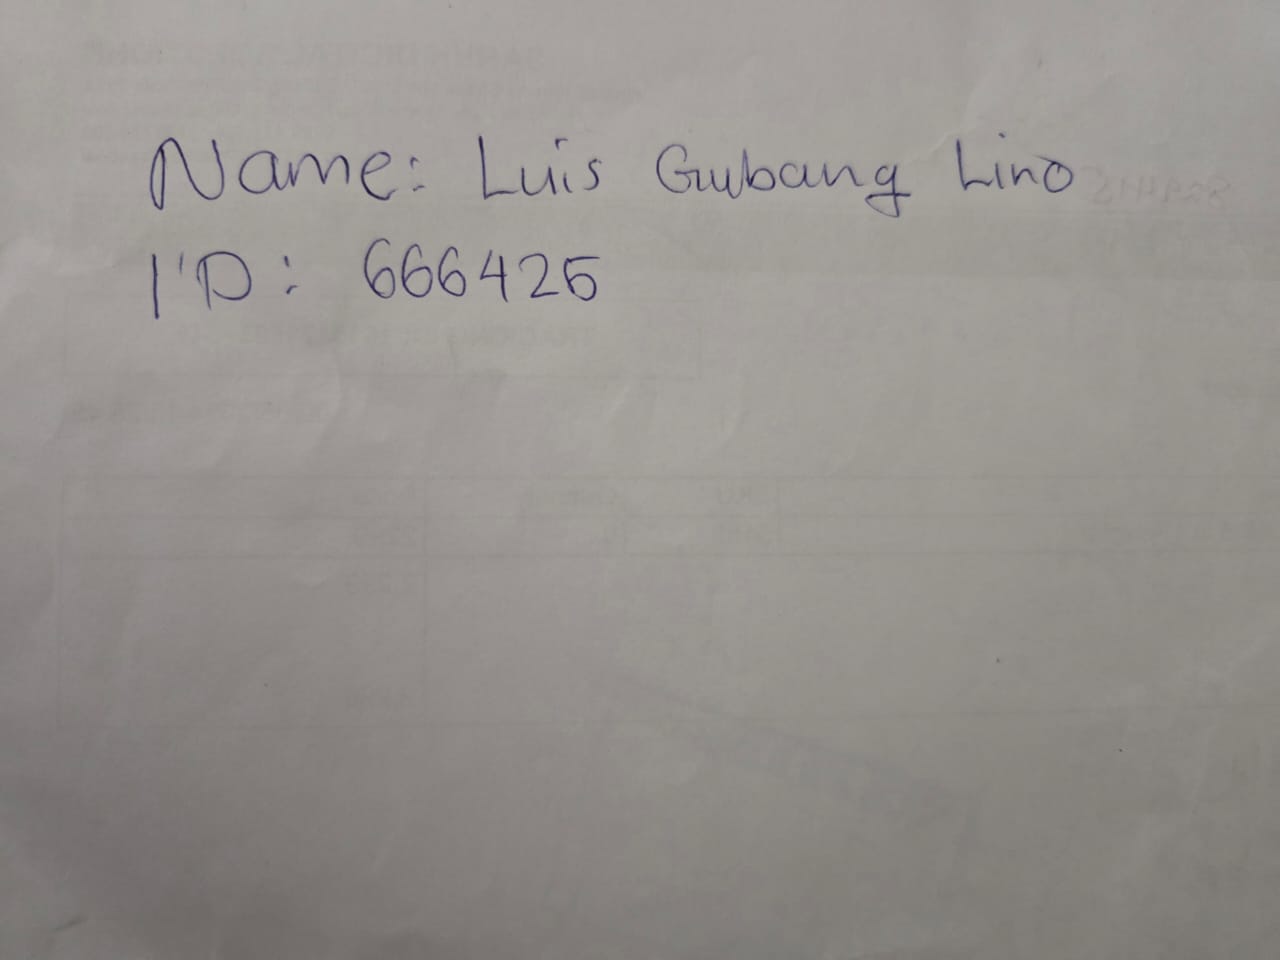 Name: Luis Gubang Lino
I'D: 666425